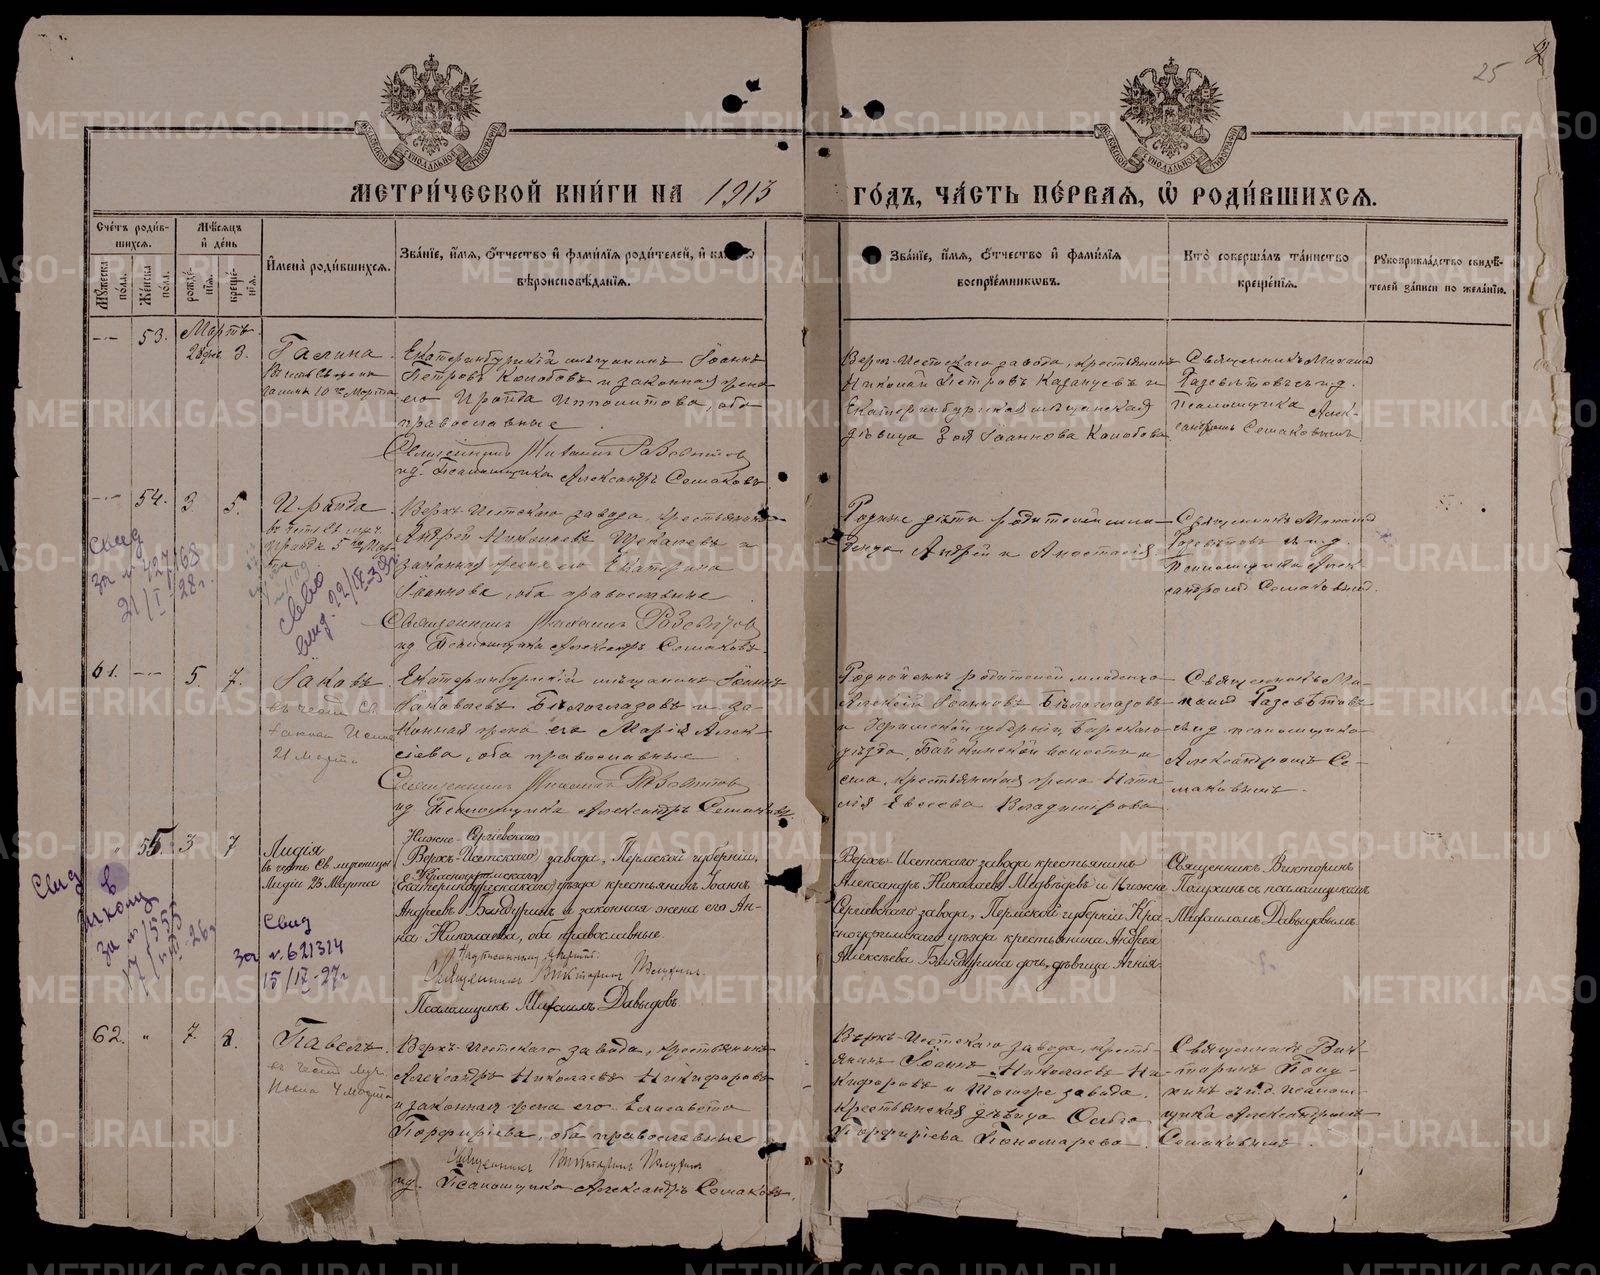 25
2
МОСКОВСКОЙ СѴНОДАЛЬНОЙ ТИПОГРАФІИ
МОСКОВСКОЙ СѴНОДАЛЬНОЙ ТИПОГРАФІИ
МЕТРИ́ЧЕСКОЙ КНИ́ГИ НА 1913 ГО́ДЪ, ЧА́СТЬ ПЕ́РВАЯ, Ѽ РОДИ́ВШИХСЯ.
Сче́тъ роди́в-
шихся.
Мѣ́сяцъ
и҆ де́нь
Мꙋ́жеска
по́ла.
Же́нска
пола.
рожде́-
нїя.
креще́-
нїя.
И҆мена̀ роди́вшихся.
Зва́нїе, и҆́мя, ѻ҆́тчество и҆ фами́лїя роди́телей, и҆
вѣроисповѣ́данїя.
Зва́нїе, и҆́мя, ѻ҆́тчество и҆ фами́лїя
воспрїе́мниковъ.
Кто̀ соверша́лъ та́инство
креще́нїя.
Рꙋкоприкла́дство свидѣ́-
телей за́писи по жела́нїю.
53.
Мартъ.
3.
Галина
10го Марта
Екатеринбургскій мѣщанинъ Іоаннъ
Петровъ Колобовъ и законная жена
его Ираида Ипполитова, оба
православные
Священникъ Михаилъ Развѣтовъ
ид. Псаломщика Александръ Семаковъ
Верх-Исетскаго завода, крестьянинъ
Николай Петровъ Казанцевъ и
Екатеринбургская мѣщанская
дѣвица Зоя Іоаннова Колобова.
Священникъ Михаилъ
Развѣтовъ съ и.д.
псаломщика Алек-
сандромъ Семаковымъ
54.
3.
5.
Ираида
Верх-Исетскаго завода, крестьянинъ
Андрей Николаевъ и
законная жена его Екатерина
Іоаннова, оба православные
Священникъ Михаилъ Развѣтовъ
ид Псаломщика Александръ Семаковъ
Родные дѣти родителей мла-
денца Андрей и Анастасія
Священникъ Михаилъ
Развѣтовъ съ и.д.
псаломщика Алек-
сандромъ Семаковымъ
Свид
21/I 28г.
свид. 22/IV-39г.
61.
5.
7.
Іаковъ
въ честь Св.
21 марта
Екатеринбургскій мѣщанинъ Іоаннъ
Іаковлевъ Бѣлоглазовъ и за-
конная жена его Марія Алек-
сіева, оба православные
Священникъ Михаилъ Развѣтовъ
ид Псаломщика Александръ Семаковъ
родителей младенца
Алексій Іоанновъ Бѣлоглазовъ
и Уфимской губерніи, Бирскаго
уѣзда, Байкинской волости и
села, крестьянская жена Ната-
лія Евсеева Владимірова
Священникъ Ми-
хаилъ Развѣтовъ
съ ид псаломщика
Александромъ Се-
маковымъ.
55.
3
7
Лидія
въ честь Св. мученицы
Лидіи 23 Марта
Нижне-Сергіевскаго
Верхъ-Исетскаго завода, Пермской губерніи,
Красноуфимскаго
Екатеринбургскаго уѣзда крестьянинъ Іоаннъ
Андреевъ Бандуринъ и законная жена его Ан-
на Николаева, оба православные.
Священникъ Викторинъ Полухинъ.
Псаломщикъ Михаилъ Давыдовъ
Верхъ-Исетскаго завода крестьянинъ
Александръ Николаевъ Медвѣдевъ и Нижне
Сергіевскаго завода, Пермской губерніи Кра
сноуфимскаго уѣзда крестьянина Андрея
Алексѣева Бандурина дочь, дѣвица Агнія.
Священникъ Викторинъ
Полухинъ съ псаломщикомъ
Михаиломъ Давыдовымъ
Свид в
школу
за № 1555
Свид
за № 621314
15/IV-27г
62.
"
7.
8.
Павелъ.
въ честь муч.
Павла 4 марта
Верх-Исетскаго завода, крестьянинъ
Александръ Николаевъ Никифоровъ
и законная жена его Елисавета
Порфиріева, оба православные
Священникъ Викторинъ Полухинъ
ид. Псаломщика Александръ Семаковъ.
Верхъ-Исетскаго завода, кресть-
янинъ Іоаннъ Николаевъ Ни-
кифоровъ и Тогоже завода
крестьянская дѣвица Ольга
Порфиріева Пономарева
Священникъ Вик-
торинъ Полу-
хинъ съ и.д. псалом-
щика Александромъ
Семаковымъ.
METRIKI.GASO-URAL.RU